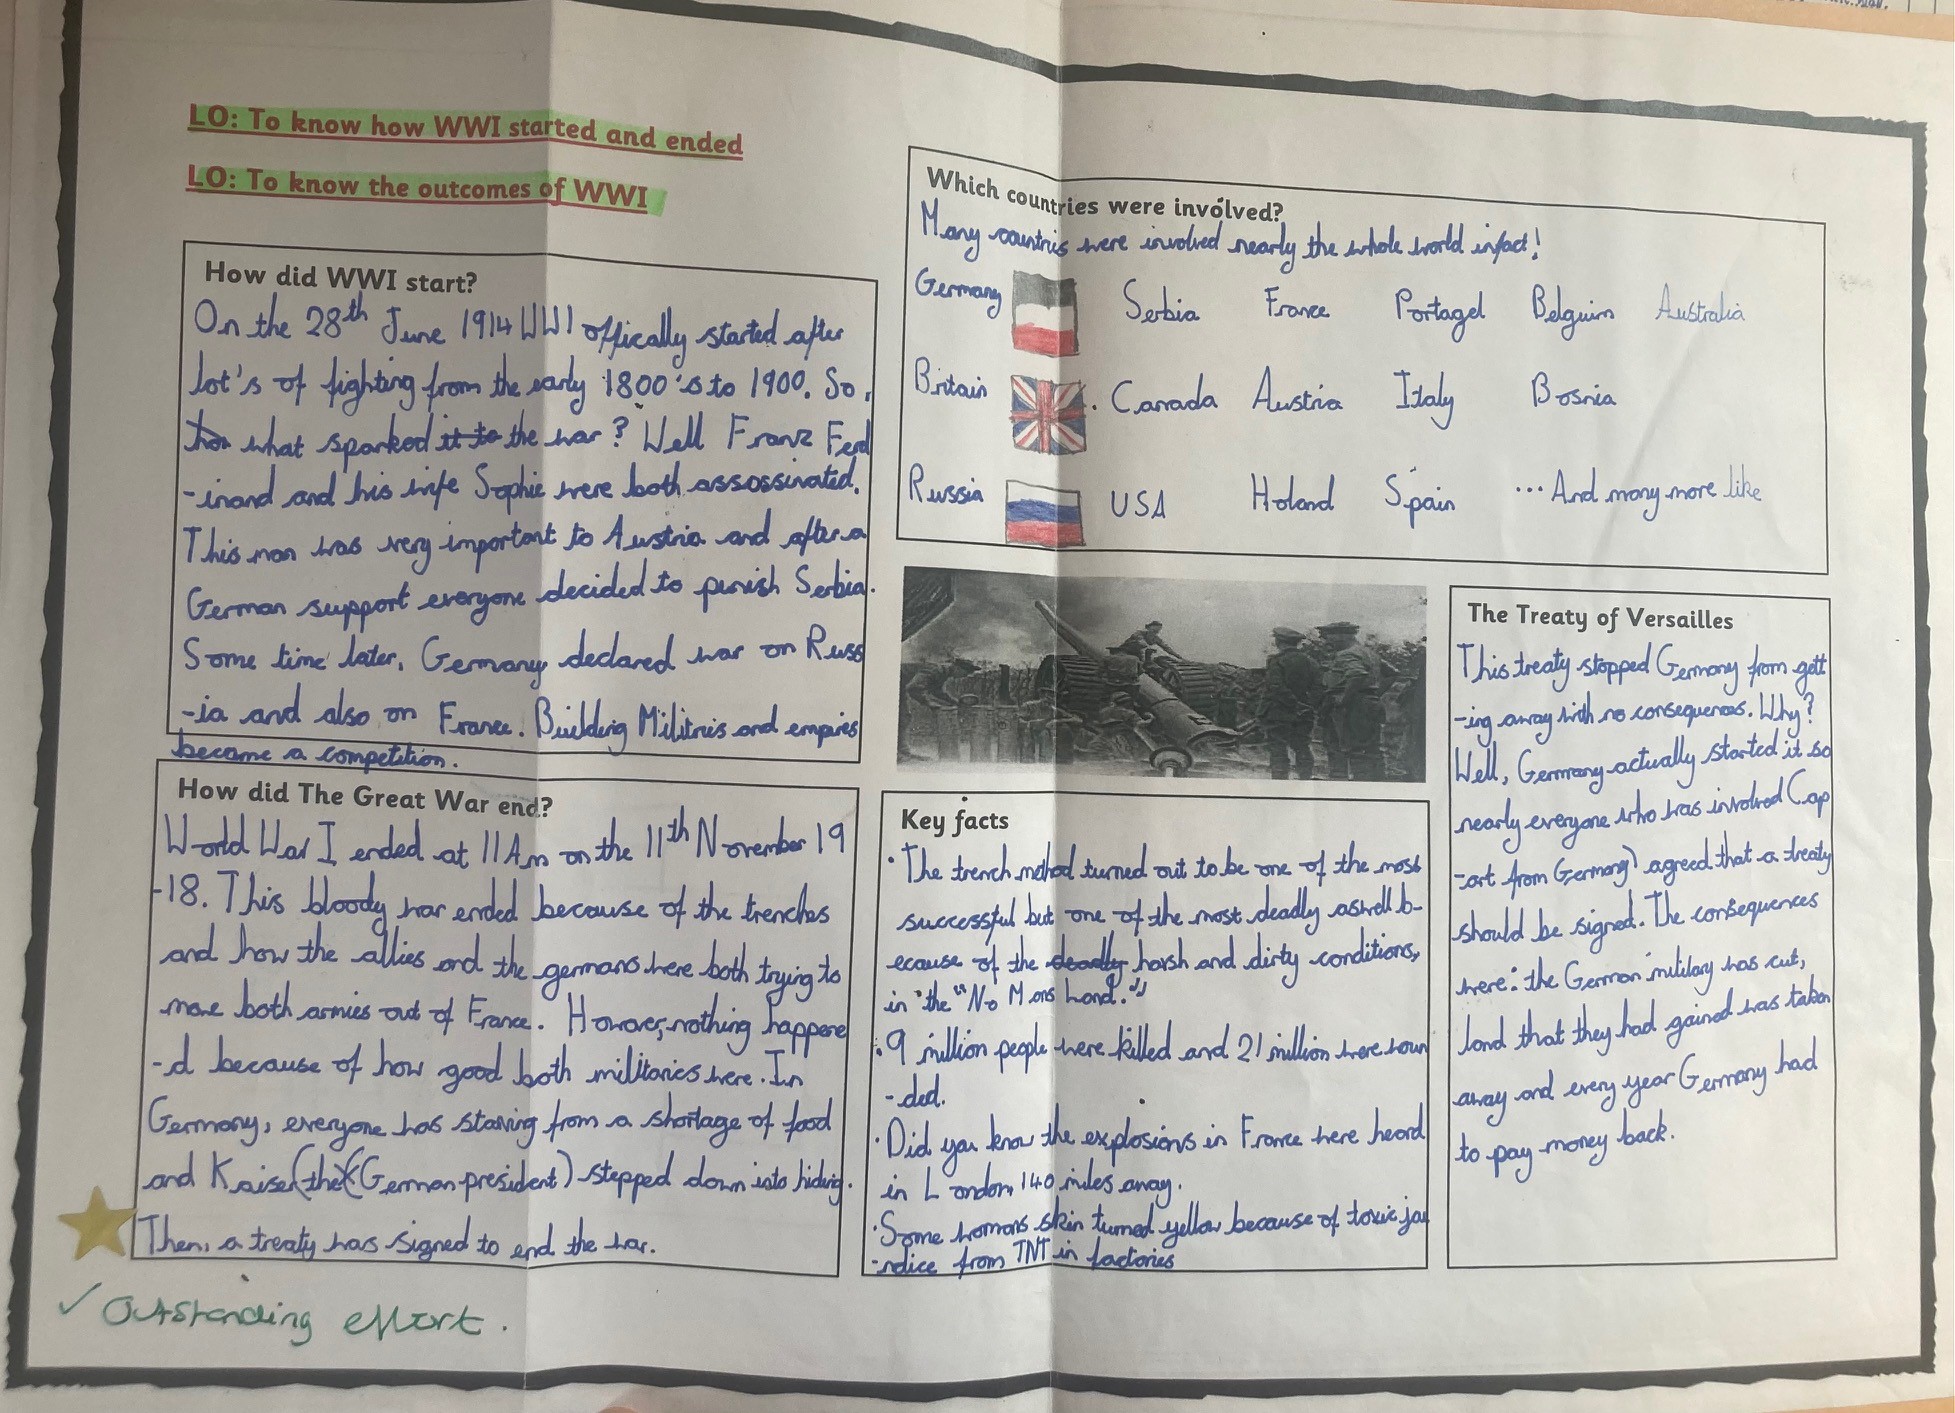 LO: To know how WWI started and ended
LO: To know the outcomes of WWI
How did WWI start?
On the 28th June 1914 WW1 offically started after
lot's of fighting from the early 1800's to 1900. So,
what sparked it to the war? Well Franz Ferd
-inand and his wife Sophie were both assossinated.
This man was very important to Austria and after a
German support everyone decided to punish Serbia.
Some time later, Germany declared war on Russ
-ia and also on France. Building Militries and empires
became a competition.
How did The Great War end?
World War I ended at 11Am on the 11th November 19
-18. This bloody war ended because of the trenches
and how the allies and the germans were both trying to
move both armies out of France. However, nothing happene
-d because of how good both militaries were. In
Germany, everyone was starving from a shortage of food
and Kaiser (the) (German president) stepped down into hiding.
Then, a treaty was signed to end the war.
✓ Outstanding effort.
Which countries were involved?
Many countris were involved nearly the whole world infact!
Germany Serbia France Portagel Belguim Australia
Britain Canada Austria Italy Bosnia
Russia USA Holand Spain ...And many more like
Key facts
• The trench method turned out to be one of the most
successful but one of the most deadly aswell b-
ecause of the deadly harsh and dirty conditions,
in the "No Mans Land."
• 9 million people were killed and 21 million were woun
-ded.
• Did you know the explosions in France were heard
in London 140 miles away.
• Some womans skin turned yellow because of toxic jau
-ndice from TNT in factories
The Treaty of Versailles
This treaty stopped Germany from gett
-ing away with no consequences. Why?
Well, Germany actually started it so
nearly everyone who was involved (ap
-art from Germany) agreed that a treaty
should be signed. The consequences
were: the German military was cut,
land that they had gained was taken
away and every year Germany had
to pay money back.